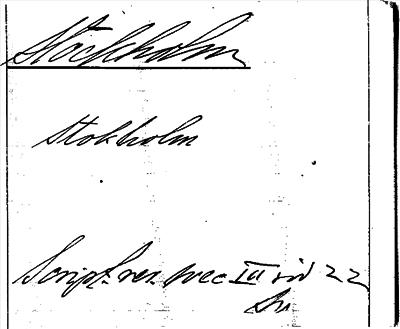 Stockholm
Stokholm
Script. rer. svec III sid 22